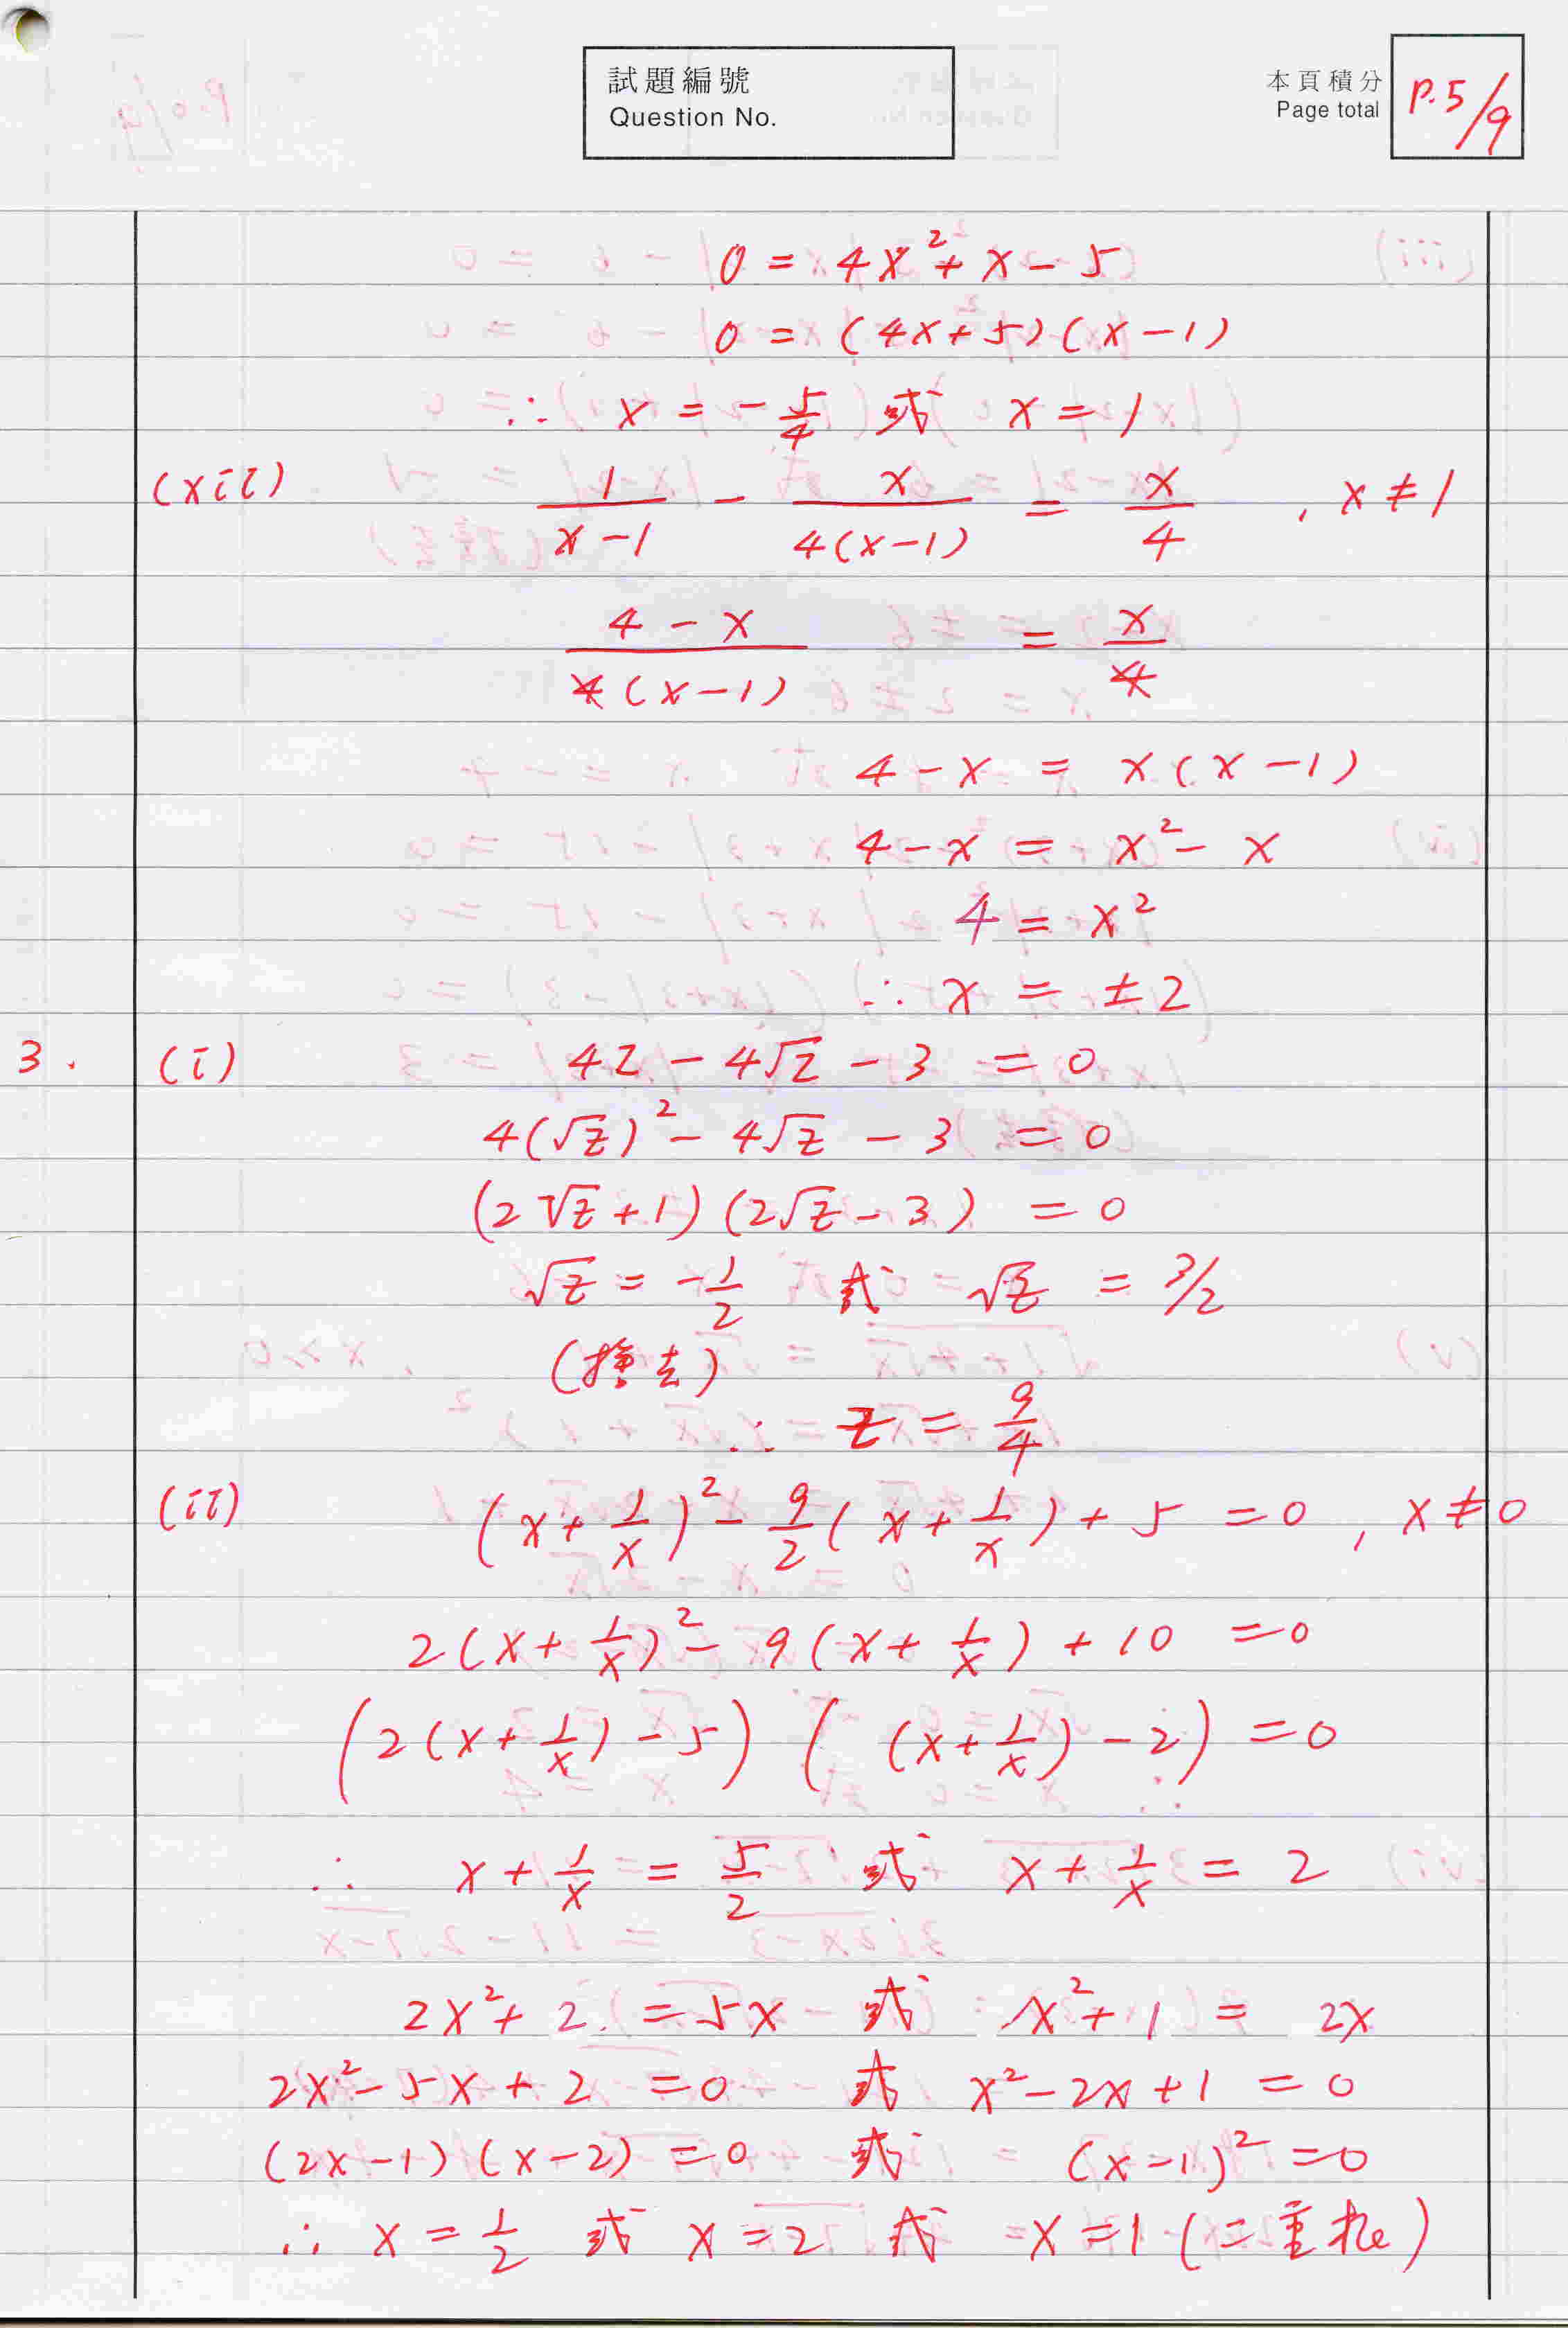 試題編號
Question No.
本頁積分
Page total
P.5/9
0 = 4x² + x - 5
0 = (4x+5)(x-1)
∴ x = -5/4 或 x = 1
(xii) 1/(x-1) - x/(4(x-1)) = x/4 , x ≠ 1
(4-x)/(4(x-1)) = x/4
4 - x = x(x-1)
4 - x = x² - x
4 = x²
∴ x = ±2
3. (i) 4z - 4√z - 3 = 0
4(√z)² - 4√z - 3 = 0
(2√z+1)(2√z-3) = 0
√z = -1/2 或 √z = 3/2
(捨去)
∴ z = 9/4
(ii) (x + 1/x)² - 9/2(x + 1/x) + 5 = 0 , x ≠ 0
2(x + 1/x)² - 9(x + 1/x) + 10 = 0
(2(x + 1/x) - 5)((x + 1/x) - 2) = 0
∴ x + 1/x = 5/2 或 x + 1/x = 2
2x² + 2 = 5x 或 x² + 1 = 2x
2x² - 5x + 2 = 0 或 x² - 2x + 1 = 0
(2x-1)(x-2) = 0 或 (x-1)² = 0
∴ x = 1/2 或 x = 2 或 x = 1 (二重根)